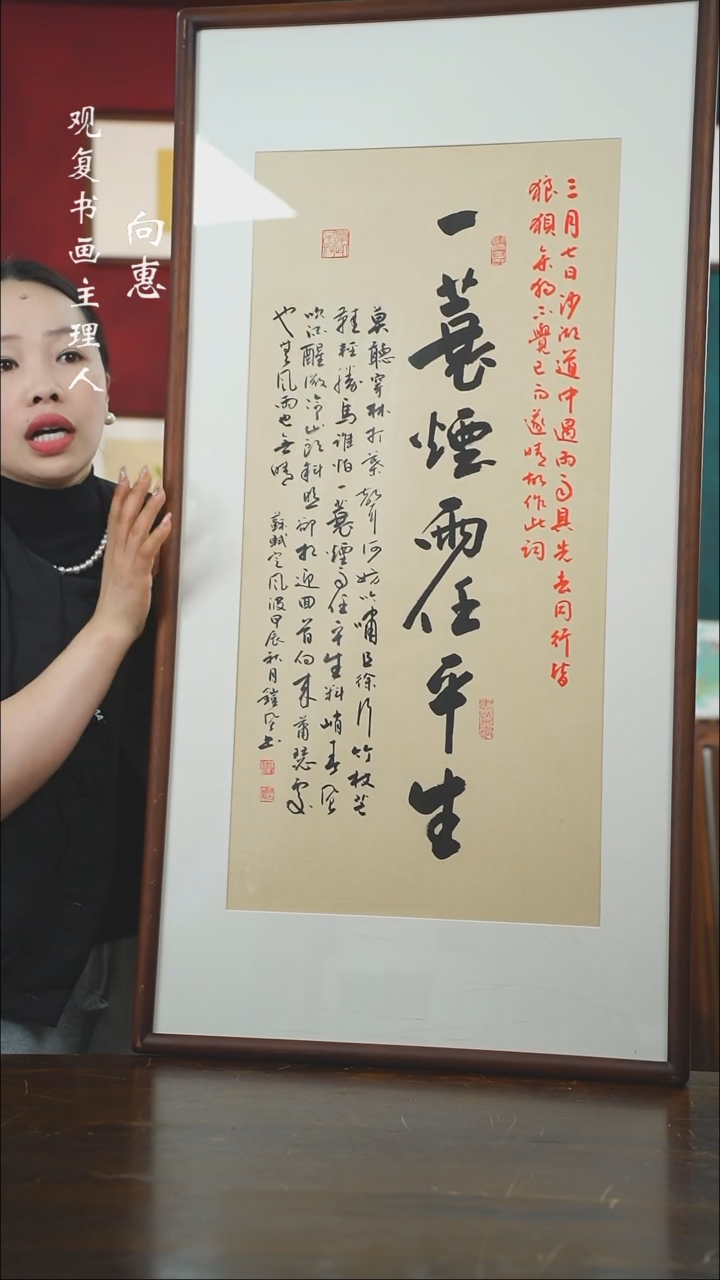 三月七日沙湖道中遇雨雨具先去同行皆
狼狽余獨不覺已而遂晴故作此詞
一蓑煙雨任平生
莫聽穿林打葉聲何妨吟嘯且徐行竹杖芒
鞋輕勝馬誰怕一蓑煙雨任平生料峭春風
吹酒醒微冷山頭斜照卻相迎回首向來蕭瑟處
也無風雨也無晴
蘇軾定風波甲辰秋月鎧書
向惠
观复书画主理人